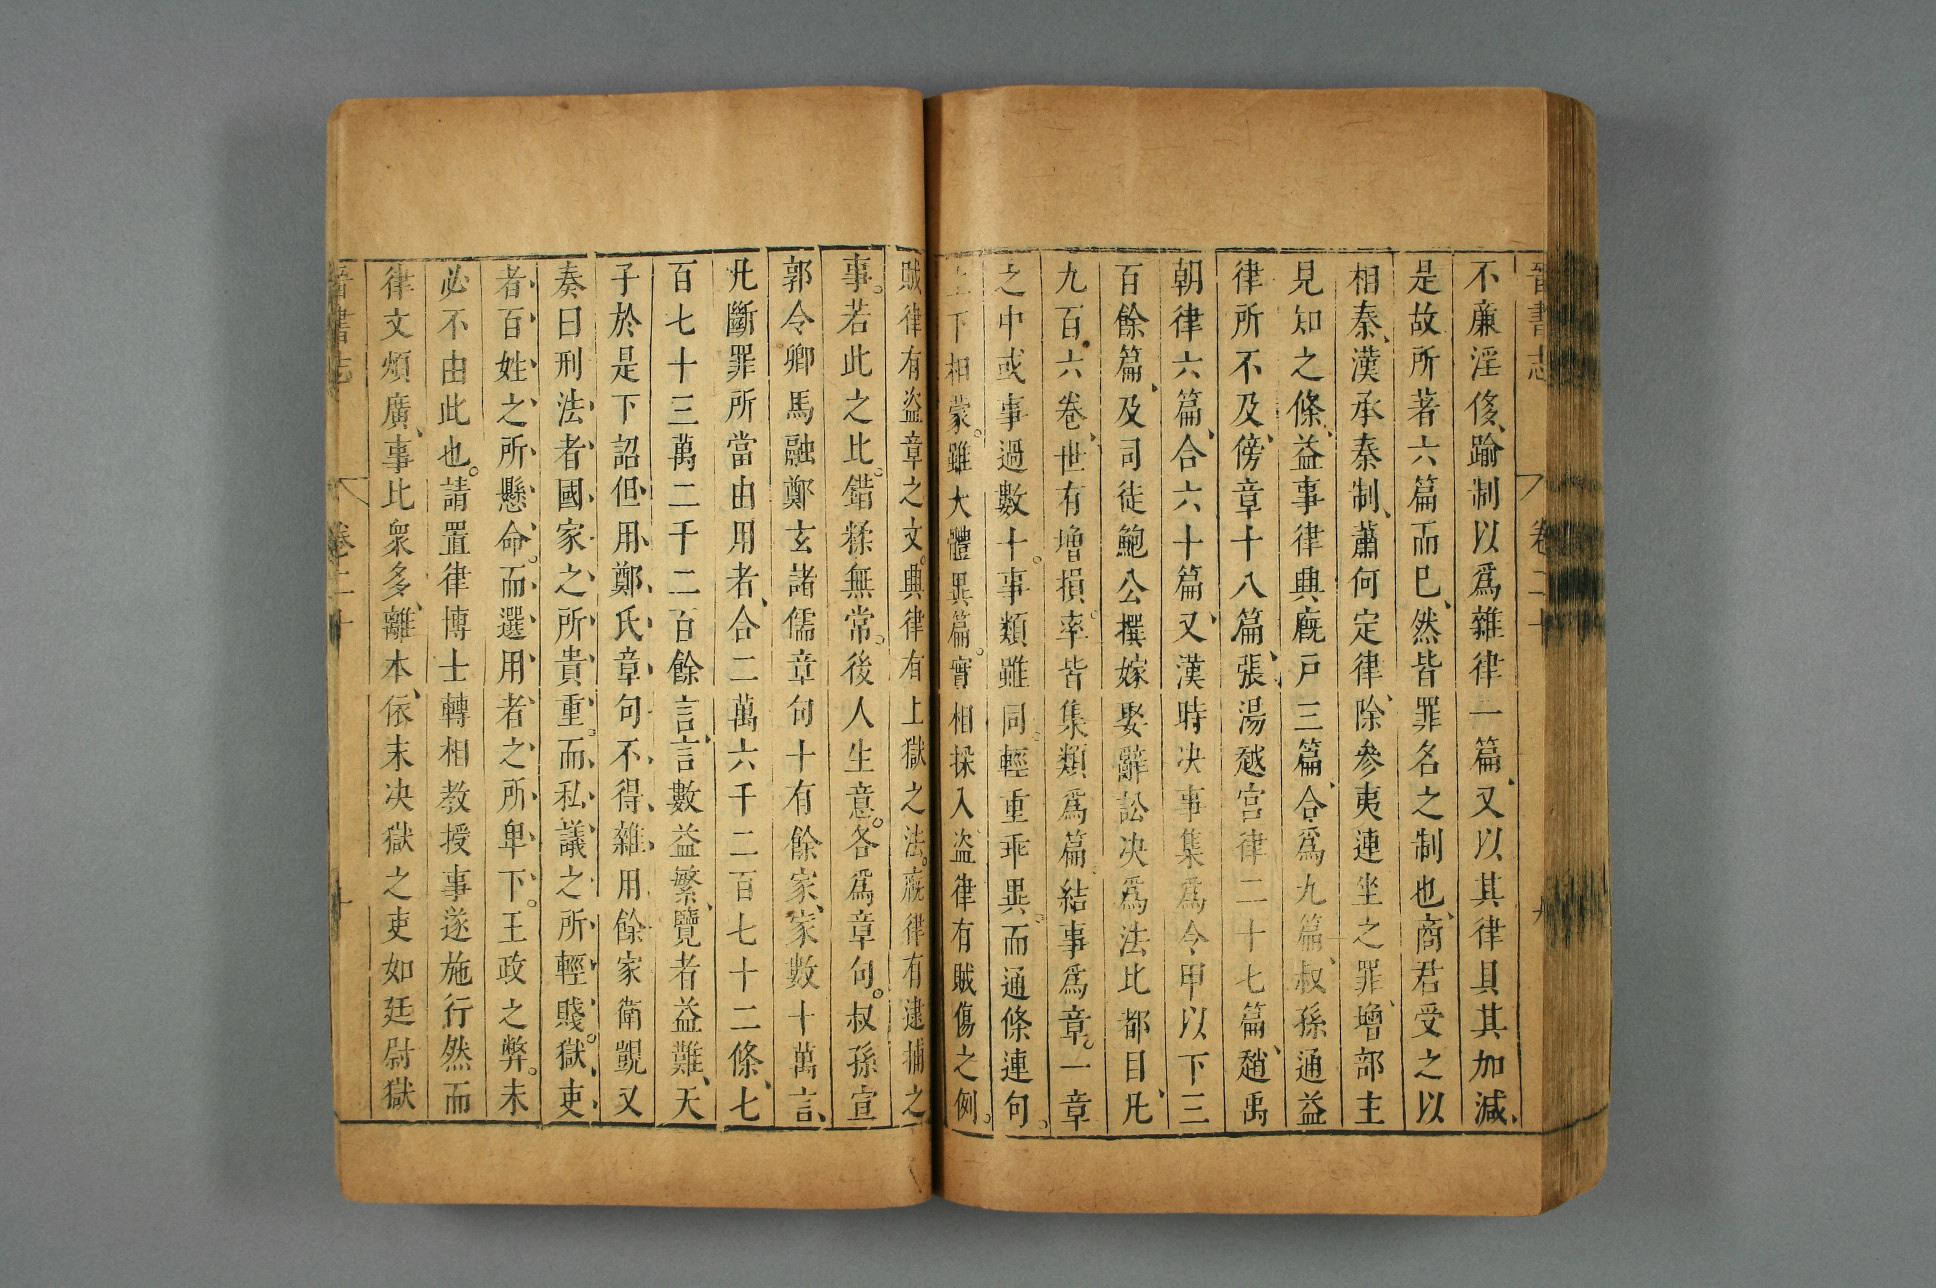 晉書志 卷三十 九
不廉淫侈、踰制以爲雜律一篇、又以其律具其加減、
是故所著六篇而已、然皆罪名之制也、商君受之以
相秦、漢承秦制、蕭何定律、除參夷連坐之罪、增部主
見知之條、益事律興廐戶三篇、合爲九篇、叔孫通益
律所不及、傍章十八篇、張湯越宮律二十七篇、趙禹
朝律六篇、合六十篇、又漢時决事集爲令甲以下三
百餘篇、及司徒鮑公撰嫁娶辭訟决爲法比都目、凡
九百六卷、世有增損。率皆集類爲篇、結事爲章。一章
之中或事過數十。事類雖同、輕重乖異。而通條連句。
上下相蒙。雖大體異篇。實相採入、盜律有賊傷之例。
賊律有盜章之文。興律有上獄之法。廐律有逮捕之
事。若此之比。錯糅無常。後人生意。各爲章句。叔孫宣
郭令卿馬融鄭玄諸儒章句十有餘家、家數十萬言、
凡斷罪所當由用者、合二萬六千二百七十二條、七
百七十三萬二千二百餘言、言數益繁、覽者益難、天
子於是下詔但用鄭氏章句不得雜用餘家衛覬又
奏曰刑法者國家之所貴重。而私議之所輕賤。獄吏
者、百姓之所懸命。而選用者之所卑下。王政之弊。未
必不由此也。請置律博士轉相教授事遂施行然而
律文煩廣、事比衆多、離本依末、决獄之吏如廷尉獄
晉書志 卷三十 十